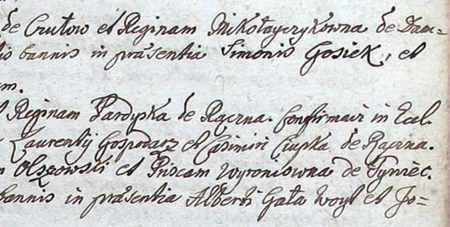 de Crutow et Reginam Mikołayczykowna de Dam=
io bannis in præsentia Simonis Gosiek, et
m.
Reginam Pardyska de Rączna. Confirmavi in Eccl.
Laurentij Gospodarz et Casimiri Ciapka de Rączna.
Olszowski et Priscam Wyroniowna de Tyniec.
bannis in præsentia Alberti Gała Woyt et Jo=